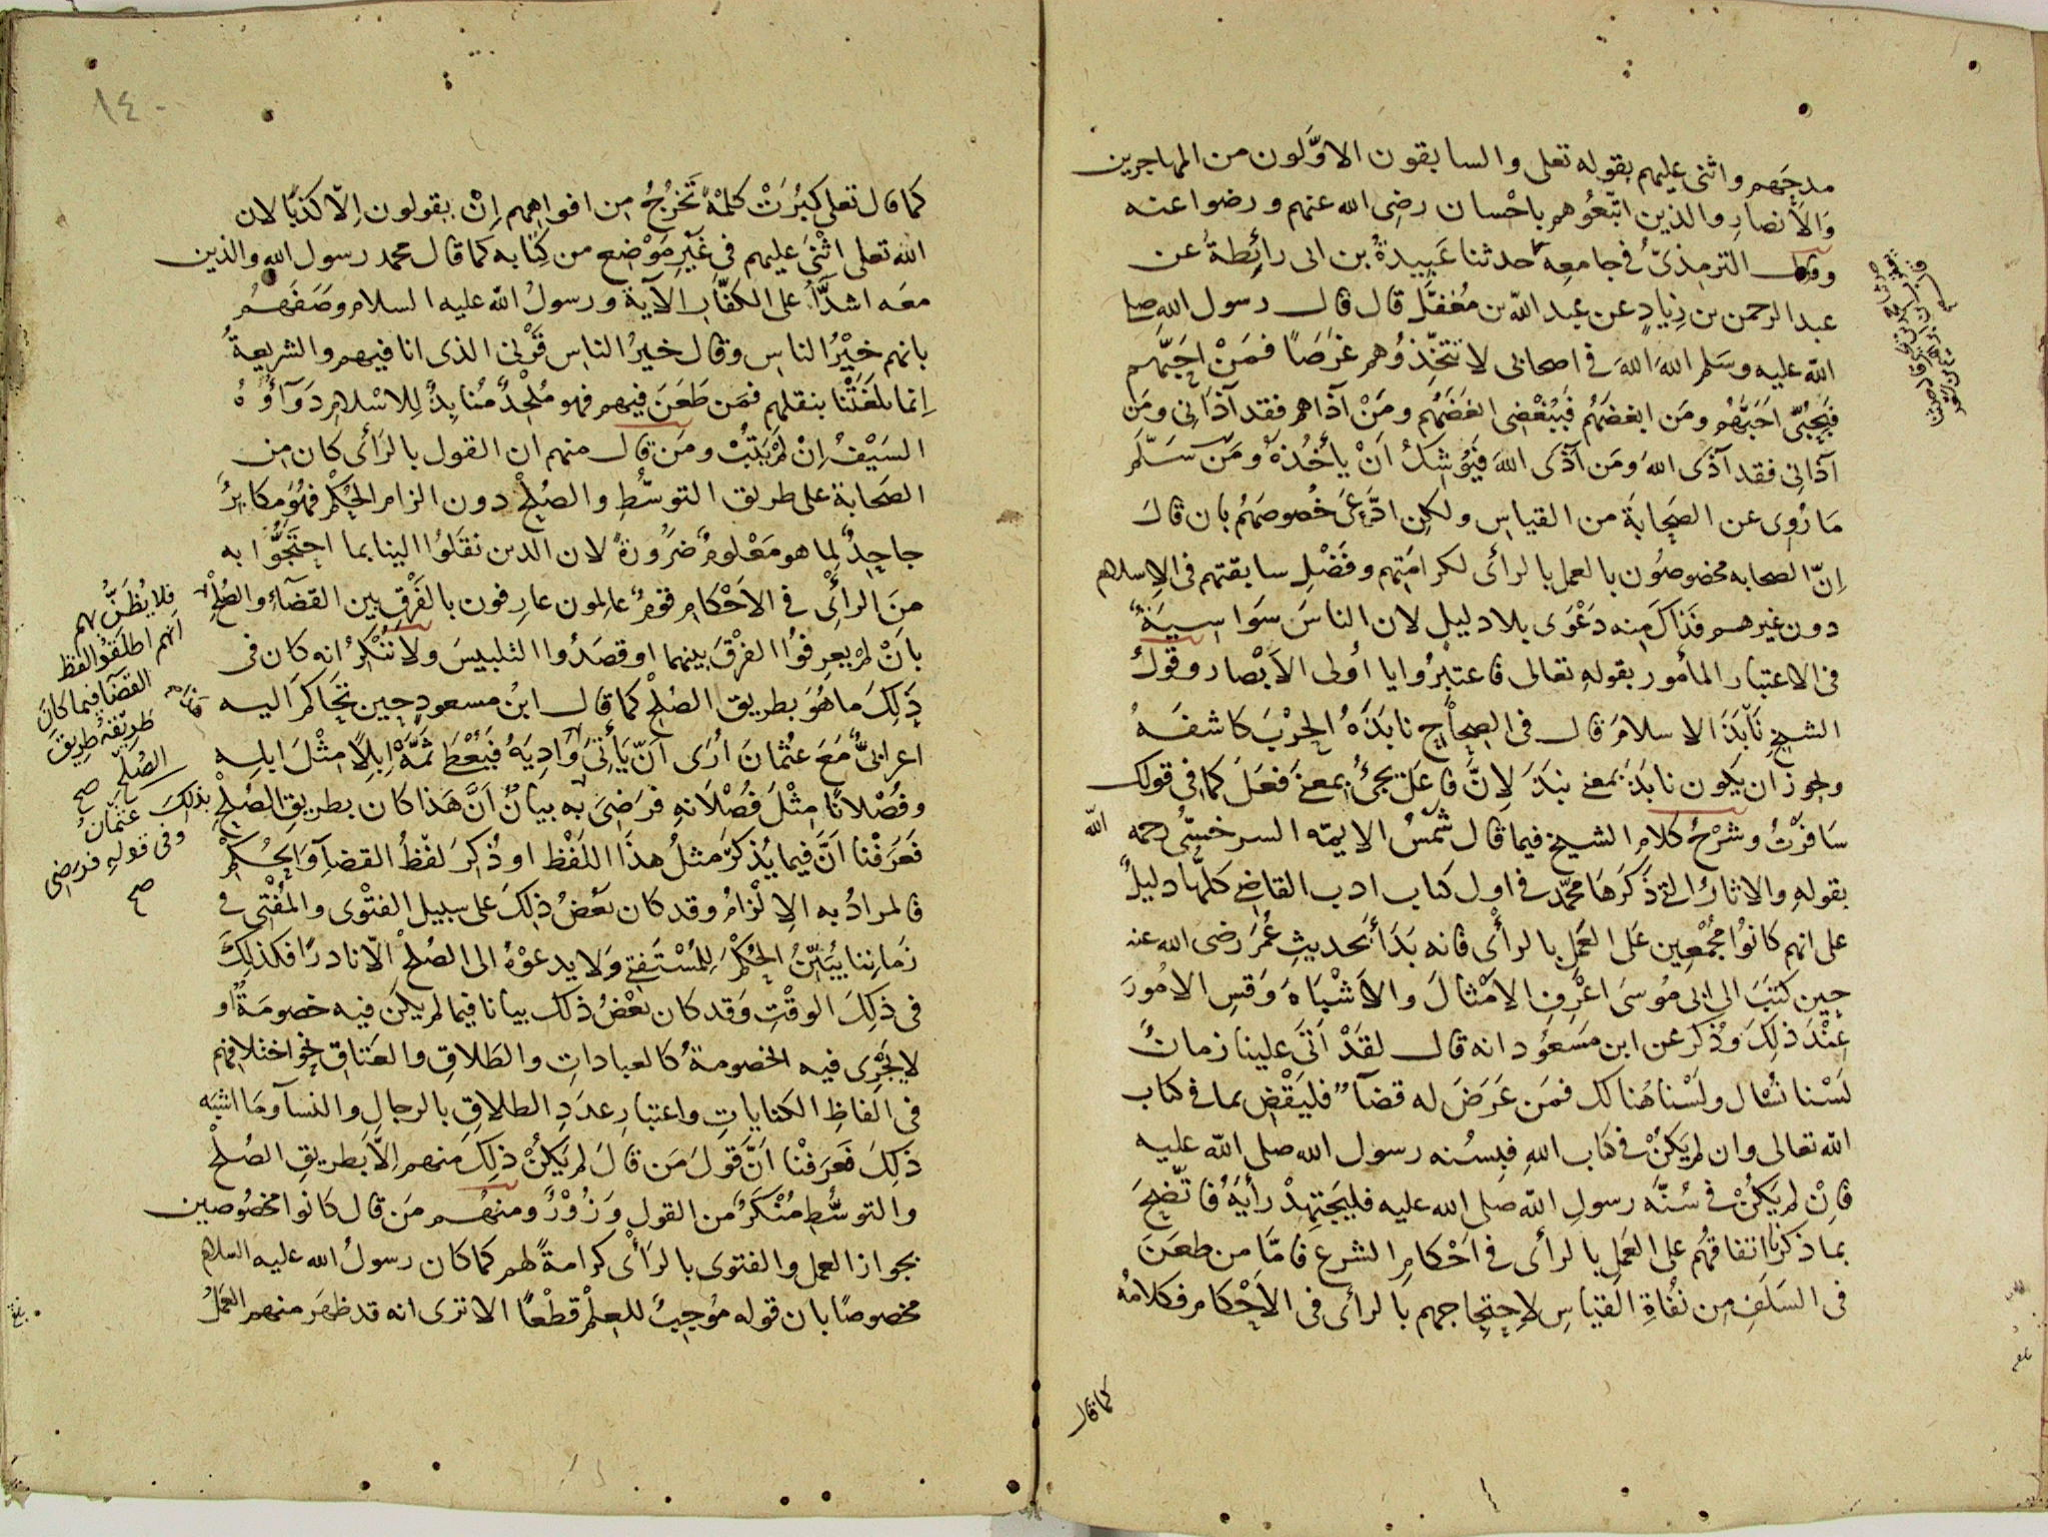 مدحهم واثنى عليهم بقوله تعلى والسابقون الاوَّلون من المهاجرين
وَالاَنصارِ والذين اتّبَعُوهم باحْسان رضِى الله عنهم ورضوا عنه
وقال الترمذىّ في جامعه حدثنا عَبِيدةُ بن ابى رائِطةُ عن
عبد الرحمن بن زِيادٍ عن عبد الله بن مُغفّل قال قال رسول الله صلى
الله عليه وسَلم اللهَ اللهَ في اصحابى لا تتّخِذوُهم غَرَضًا فمَنْ احَبّهم
فبِحُبّى احَبَّهُم ومَن ابغضَهُم فبِبُغْضِى ابغَضَهُم ومَنْ آذاهم فقد آذانى ومَن
آذانِى فقد آذَى اللهَ ومَن آذَى اللهَ فَيُوْشَكُ اَنْ يأخُذهُ ومَنْ سَلّمَ
مَا رُوِى عن الصَحابَة من القياسِ ولكنِ ادَّعىَ خُصوصَهُم بان قالَ
اِنّ الصحابه مخصوصُون بالعمل بالرأى لكرامَتِهم وفَضْلِ سابقتهم فى الاِسلام
دون غيرهم فذاكَ مِنه دَعْوَى بلا دليلٍ لان الناسَ سَوَاسِيَةٌ
فى الاعتبار المأمور بقولهِ تعالى فاعتبرُوا يا اُولى الاَبْصار وقولُ
الشيخِ نَابَذَ الاسلامَ قال فى الصِحاحِ نابَذَهُ الحَرْبَ كاشَفَهُ
ويجوز ان يكون نابَذَ بمعنى نبَذَ لِانَّ فاعَلَ يجئُ بمعنى فَعَلَ كما فى قولك
سَافَرْتُ وشَرْحُ كلامِ الشيخ فيما قال شمْسُ الايمّه السرخسىُّ رحمه الله
بقولهِ والاثارُ التي ذكَرَهَا محمَّد فى اول كتاب ادب القاضى كلّها دليلٌ
على انهم كانوُا مجُمْعِين عَلى العَمل بالرأْى فانه بَدَأَ بحديثِ عُمَرَ رضى الله عنه
حِين كتَبَ الى ابى مُوسَى اعْرِفِ الاَمْثالَ والاَشْبَاهَ وَقِسِ الامُورَ
عِنْدَ ذلِكَ وذُكرَ عَن ابنِ مَسعُود انه قال لقَدْ اَتَى علينا زمانٌ
لَسْنا نُسْال ولَسْنا هُنالك فمَن عَرَضَ له قضآءٌ فليَقْضِ بما فى كتاب
الله تعالى وان لم يَكنْ فى كتاب اللهِ فبسُنه رسول الله صلى الله عليه
فاِنْ لم يَكنْ فى سُنَّه رسولِ اللهِ صلى الله عليه فليَجتهِدْ رأيَهُ فاتّضحَ
بما ذكرنا اتفاقهُم على العَمَلِ بالرأى فى اَحْكامِ الشرع فامَّا من طعَنَ
فى السَلَفِ مِن نُفاةِ القِياسِ لِاحِتجاجهم بالرأى فى الاَحْكام فكلامُه
كما قال
١٤٠
كَما قال تعلى كَبُرَتْ كلمةً تَخرُجُ مِن افواهِهم اِنْ يقولون اِلّا كذبًا لان
الله تعلى اثْنىَ عليهم فى غَيْرِ مَوْضع من كِتابه كما قال محمد رسول الله والذين
معَه اشدَّآءُ على الكفّارِ الآية ورسولُ الله عليه السلام وصَفَهمُ
بانهم خيْرُ الناسِ وقال خيرُ الناس قَرْنى الذى انا فيهم والشريعةُ
اِنما بلغَتْنا بنقلهم فمَن طَعَنَ فيهم فهو مُلْحِدٌ مُنابِذٌ لِلاسْلام دَوَآؤهُ
السَيْفُ اِنْ لم يَتبْ ومَن قال منهم ان القول بالرَأى كان مِن
الصَحابة على طريق التوسُّطِ والصُلحْ دون الزام الحُكْم فهُوَ مكابِرٌ
جاحِدٌ لِما هو مَعْلومٌ ضرُورةً لان الذين نقَلوُا الينا بما احتَجُّوا به
مِنَ الرأىِ فى الاَحْكامِ قومٌ عالِمون عارِفون بالفَرْقِ بين القضآءِ والصُلْحِ
فلا يُظَنُّ بهم
بانْ لم يعرِفوُا الفرْقَ بينهما او قصَدُوا التلبيسَ ولا نُنْكِرُ انه كان فى
انهم اطلَقُوا لفظ
القضآ فيما كانَ
طرِيقهُ طريقَ
الصُلحْ صح
ذٰلِكَ مَا هُوَ بطريق الصُلْحِ كما قال ابنُ مسعودٍ حِين تحَاكَمَ اليه
اعرابىٌّ مَعَ عثمَانَ اُرَى اَنْ يَأْتىَ وَادِيَهُ فيُعْطَ ثمَّةَ اِبِلاً مِثْلَ ابلِه
وفُصْلانًا مِثْلَ فُصْلَانهِ فرَضىَ به بيانٌ اَنَّ هَذا كان بطريق الصُلْحِ
بذلِكَ عثمانُ
وفى قولهِ فرَضى
صح
فعَرَفْنا اَنَّ فيما يُذكَرُ مثلُ هذَا اللفْظ او ذُكِرَ لفْظُ القضآءِ وَالحُكمْ
فالمرادُ به الاِلْزامُ وقد كان بَعْضُ ذٰلِكَ على سبيل الفتْوى والمُفْتى فى
زَمانِنا يُبَيّنُ الحُكْمَ لِلمُسْتَفتى وَلا يدعوْهُ الى الصُلحْ الّا نادرًا فكذلِكَ
فى ذلِكَ الوقْتِ وَقد كان بَعْضُ ذلك بيانا فيما لم يكنَ فيه خصومَةٌ او
لا يَجْرِى فيه الخصومةُ كالعباداتِ والطَلاقِ والعَتاقِ نحو اختلافِهم
فى الفاظِ الكناياتِ واعتبارِ عدَدِ الطلاقِ بالرجالِ والنسآءِ ومَا اشبَه
ذٰلِكَ فعَرَفْنا اَنَّ قولَ مَن قالَ لم يَكنْ ذٰلِكَ منهم اِلاَّ بطريقِ الصُلْحْ
والتوسُّطِ مُنْكَرٌ من القولِ وَزُوْرٌ ومنهُم مَن قال كانُوا مخصُوصِين
بجواز العمل والفتوى بالرَأى كرامةً لهم كما كان رسولُ الله عليه السلام
مخصوصًا بان قوله مُوجِبٌ للعِلْم قطْعًا الا ترَى انه قد ظهَر منهم العَمَلُ